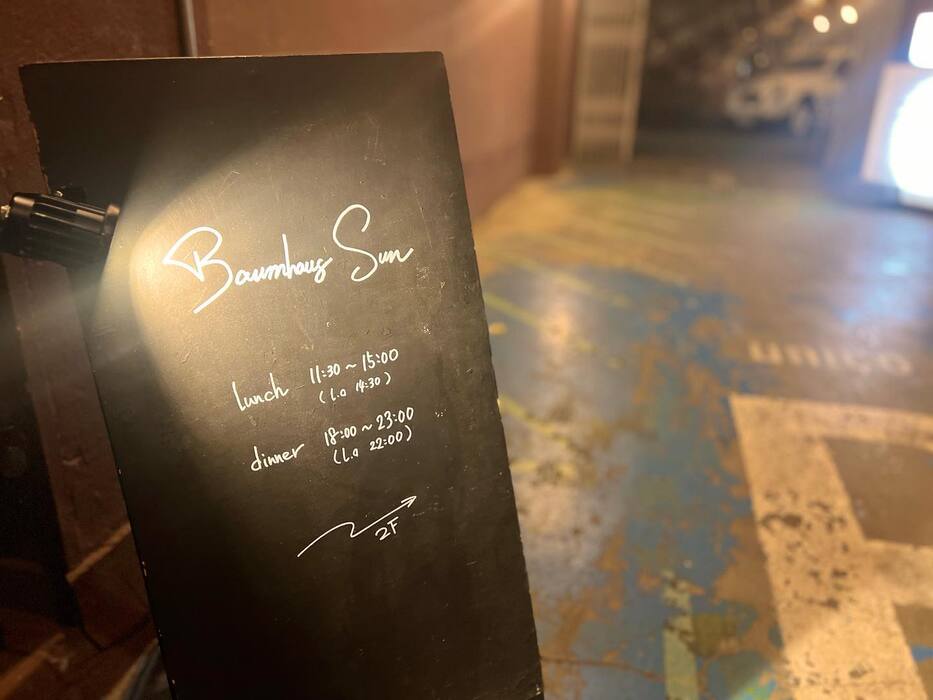 Baumhaus Sun
lunch 11:30 ~ 15:00
(l.o 14:30)
dinner 18:00 ~ 23:00
(l.o 22:00)
2F